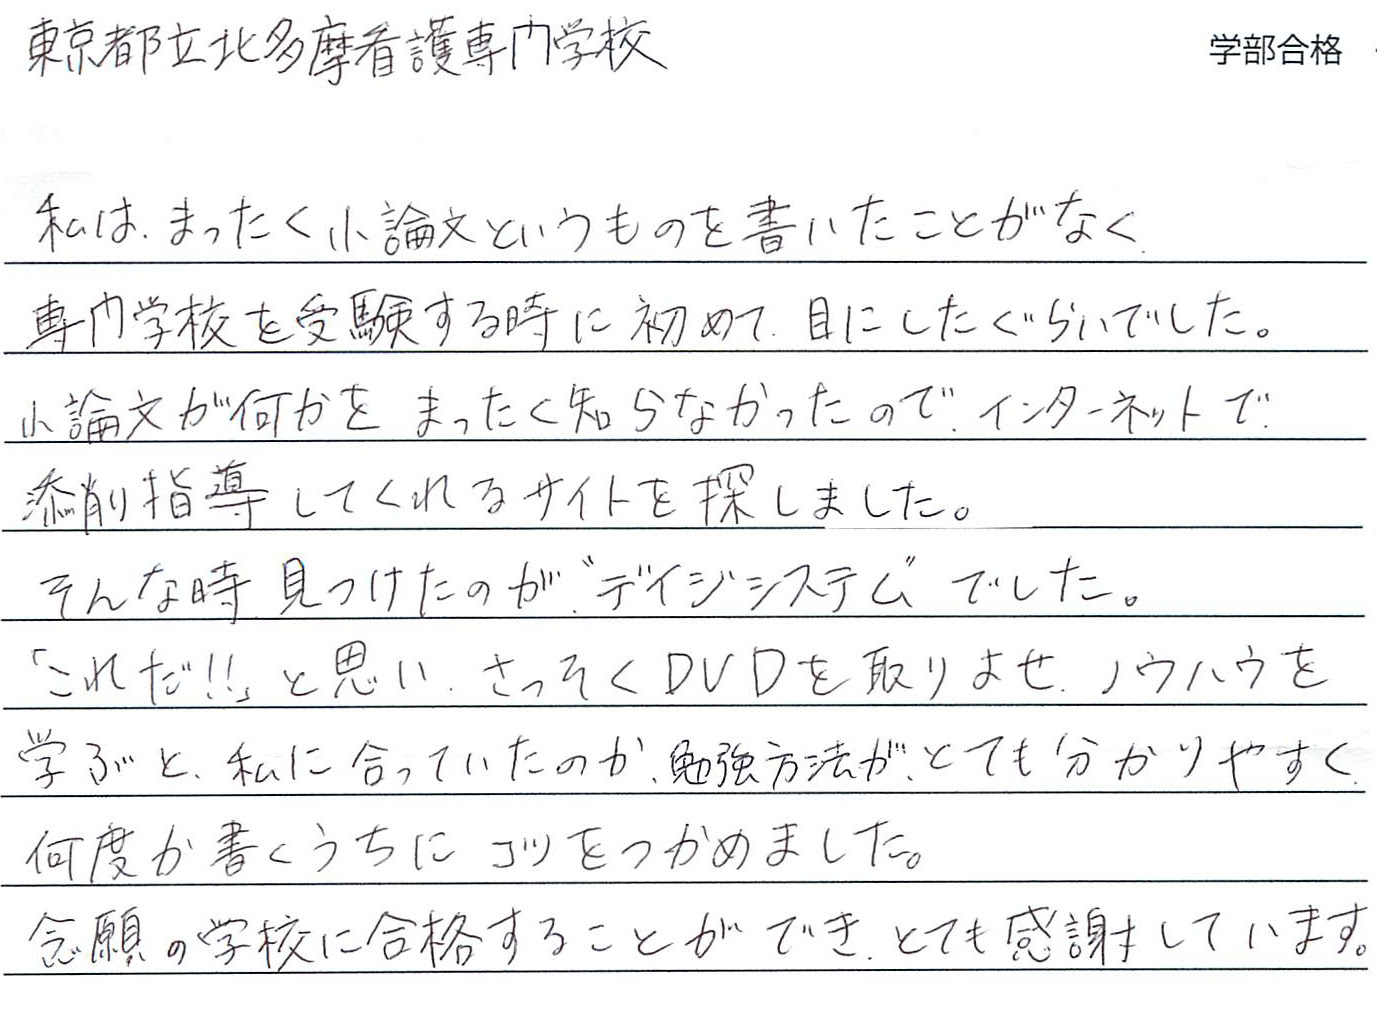 東京都立北多摩看護専門学校
学部合格
私は、まったく小論文というものを書いたことがなく、
専門学校を受験する時に初めて、目にしたぐらいでした。
小論文が何かを まったく知らなかったので、インターネットで、
添削指導してくれるサイトを探しました。
そんな時 見つけたのが、"デイジシステム" でした。
「これだ!!」と思い、さっそくDVDを取りよせ、ノウハウを
学ぶと、私に合っていたのか、勉強方法が、とても分かりやすく、
何度か書くうちに コツをつかめました。
念願の学校に合格することができ、とても感謝しています。